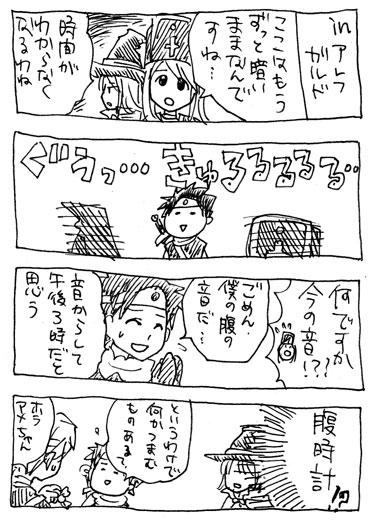 inアレフ
ガルド
ここはもう
ずっと暗い
ままなんで
すね…
時間が
わからなく
なるわね
ぐうっ…きゅるるるるる…
何ですか
今の音!??
ごめん
僕の腹の
音だ…
音からして
午後3時だと
思う
腹時計!?
というわけで
何かつまむ
ものある?
ホラ
アメちゃん